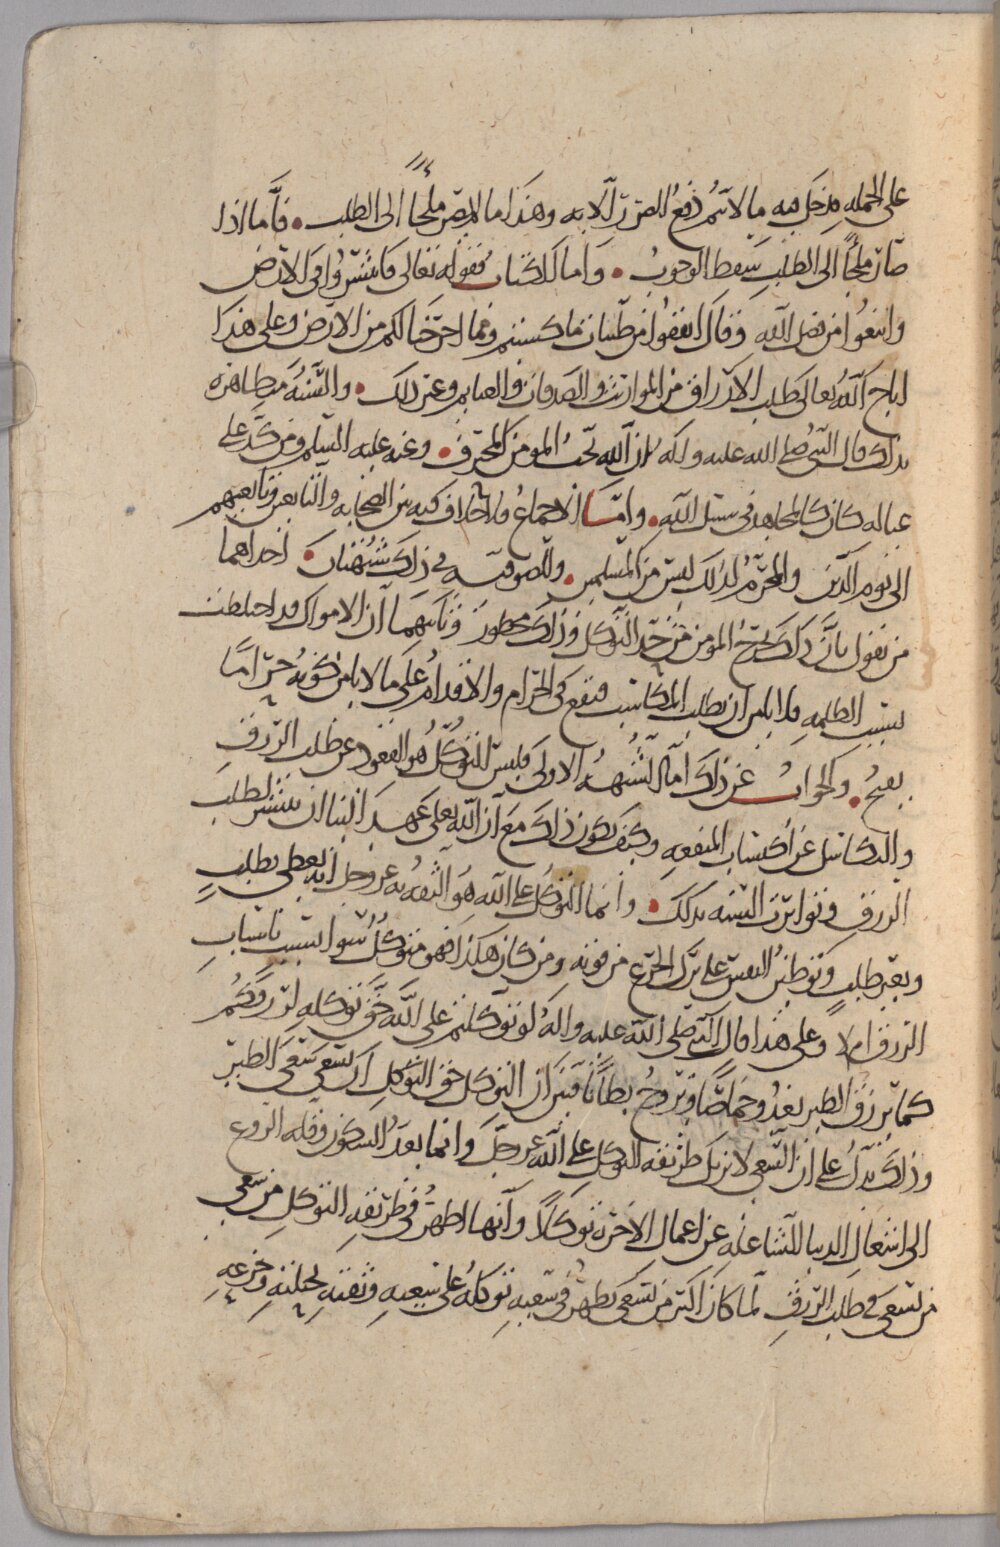 على الجمله فدخل فيه ما لا يتم دفع الضرر الا به وهذا ما لم يصر ملجأً الى الطلب • فأما اذا
صار ملجأً الى الطلب سقط الوجوب • واما الكتاب فقوله تعالى فانتشروا في الارض
وابتغوا من فضل الله وقال انفقوا من طيبات ما كسبتم ومما اخرجنا لكم من الارض وعلى هذا
اباح الله تعالى طلب الارزاق من المواريث والصدقات والغنايم وغير ذلك • والسنه متظاهره
بذلك قال النبي صلى الله عليه وآله ان الله يحب المومن المحترف • وعنه عليه السلم ومن كد على
عياله كان كالمجاهد في سبيل الله • وامّا الاجماع فلا خلاف فيه بين الصحابه والتابعين وتابعيهم
الى يوم الدين والمحرّم لذلك ليس من المسلمين • وللصوفيه في ذلك شبهتان • احداهما
من يقول بان ذلك يخرج المومن من حد التوكل وذلك محظور وثانيهما ان الاموال قد اختلطت
بسبب الظلمه فلا يامن ان يطلب المكاسب فيقع في الحرام والاقدام على ما لا يامن كونه حراما
يقبح • والجواب عن ذلك اما الشبهه الاولى فليس التوكل هو القعود عن طلب الرزق
والتكاسل عن اكتساب المنفعه وكيف يكون ذلك مع ان الله تعلى عهد الينا ان ننتشر لطلب
الرزق وتواترت السنه بذلك • وانما التوكل على الله هو الثقه به عز وجل انه يعطي بطلبٍ
وبغير طلبٍ وتوطين النفس على ترك الجزع من فوته ومن كان هكذا فهو متوكل سوا تسبب باسباب
الرزق ام لا وعلى هذا قال النبي صلى الله عليه واله لو توكلتم على الله حق توكله لرزقكم
كما يرزق الطير تغدو خماصًا وتروح بطانًا فبين ان التوكل حق التوكل ان يسعى سعي الطير
وذلك يدل على ان السعي لا يزيل طريقه التوكل على الله عز وجل وانما يعد السكون وقله النزوع
الى اشغال الدنيا الشاغله عن اعمال الاخره توكلًا وانها اظهر في طريقه التوكل من سعي
من يسعى في طلب الرزق لما كان اكثر من يسعى يظهر في سعيه توكله على سعيه وثقته بحيلته وجزعه